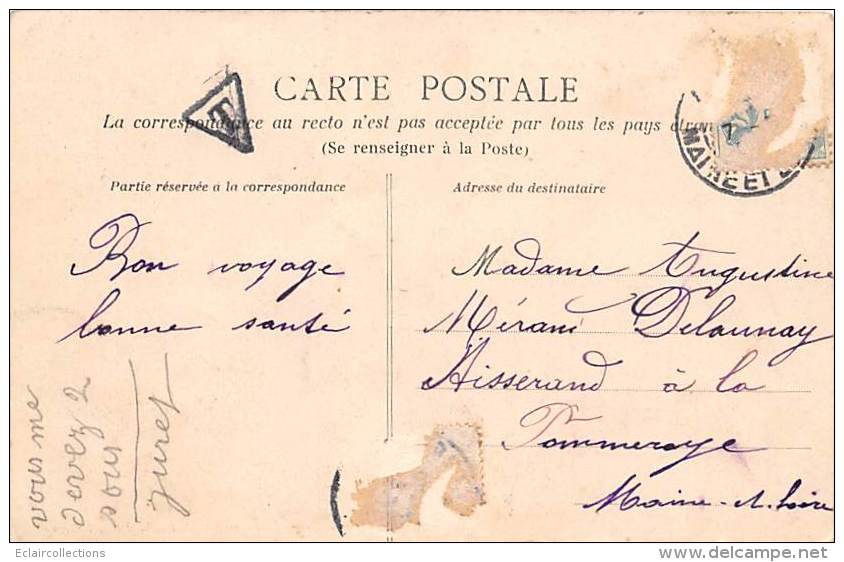 CARTE POSTALE
La correspondance au recto n'est pas acceptée par tous les pays étran
(Se renseigner à la Poste)
Partie réservée à la correspondance
Adresse du destinataire
T
MAINE ET L
Bon voyage
bonne santé
Madame Augustine
Mérand Delaunay
Tisserand à la
Pommeraye
Maine-et-Loire
vous me
devez 2
sous
Juret
Eclaircollections
© delcampe.net